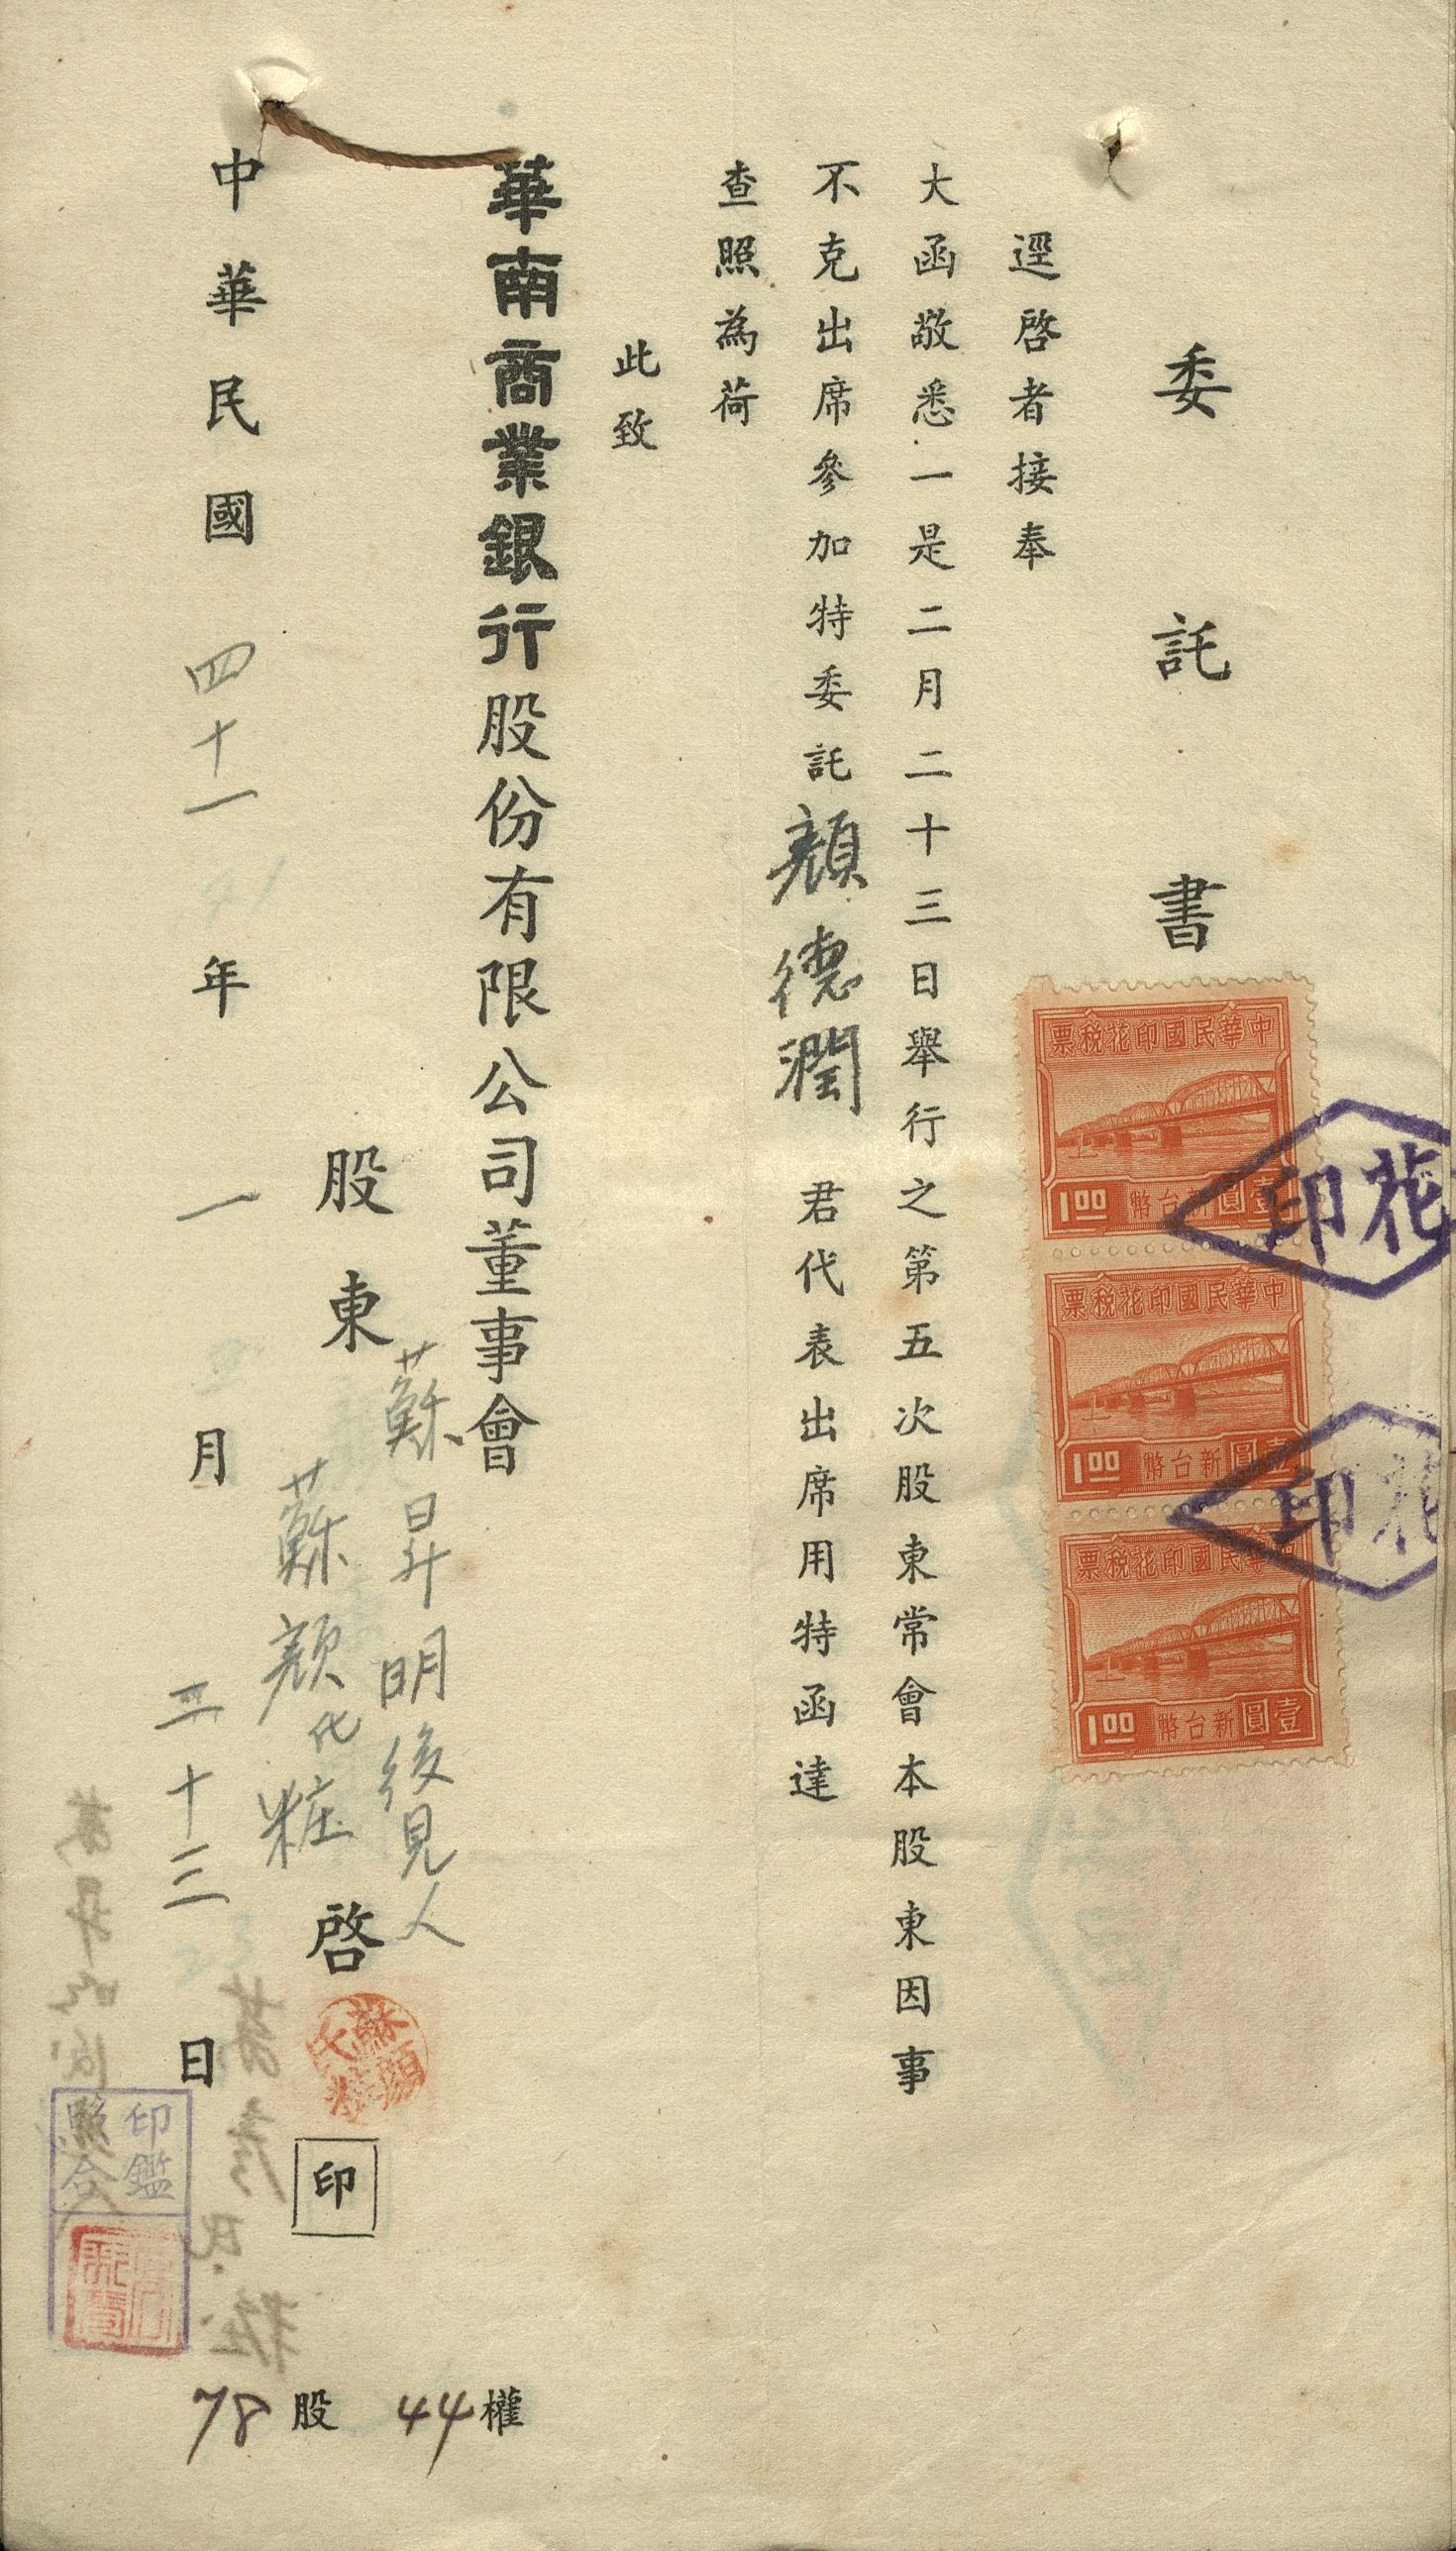 委託書
逕啓者接奉
大函敬悉一是二月二十三日舉行之第五次股東常會本股東因事
不克出席參加特委託顏德潤 君代表出席用特函達
查照為荷
此致
華南商業銀行股份有限公司董事會
股東 蘇昇明後見人
蘇顏化粧 啓
印
中華民國四十一年一月二十三日
44權
78股
中華民國印花稅票
新台幣壹圓
1.00
中華民國印花稅票
新台幣壹圓
1.00
中華民國印花稅票
新台幣壹圓
1.00
印花
印花
印鑑
照合